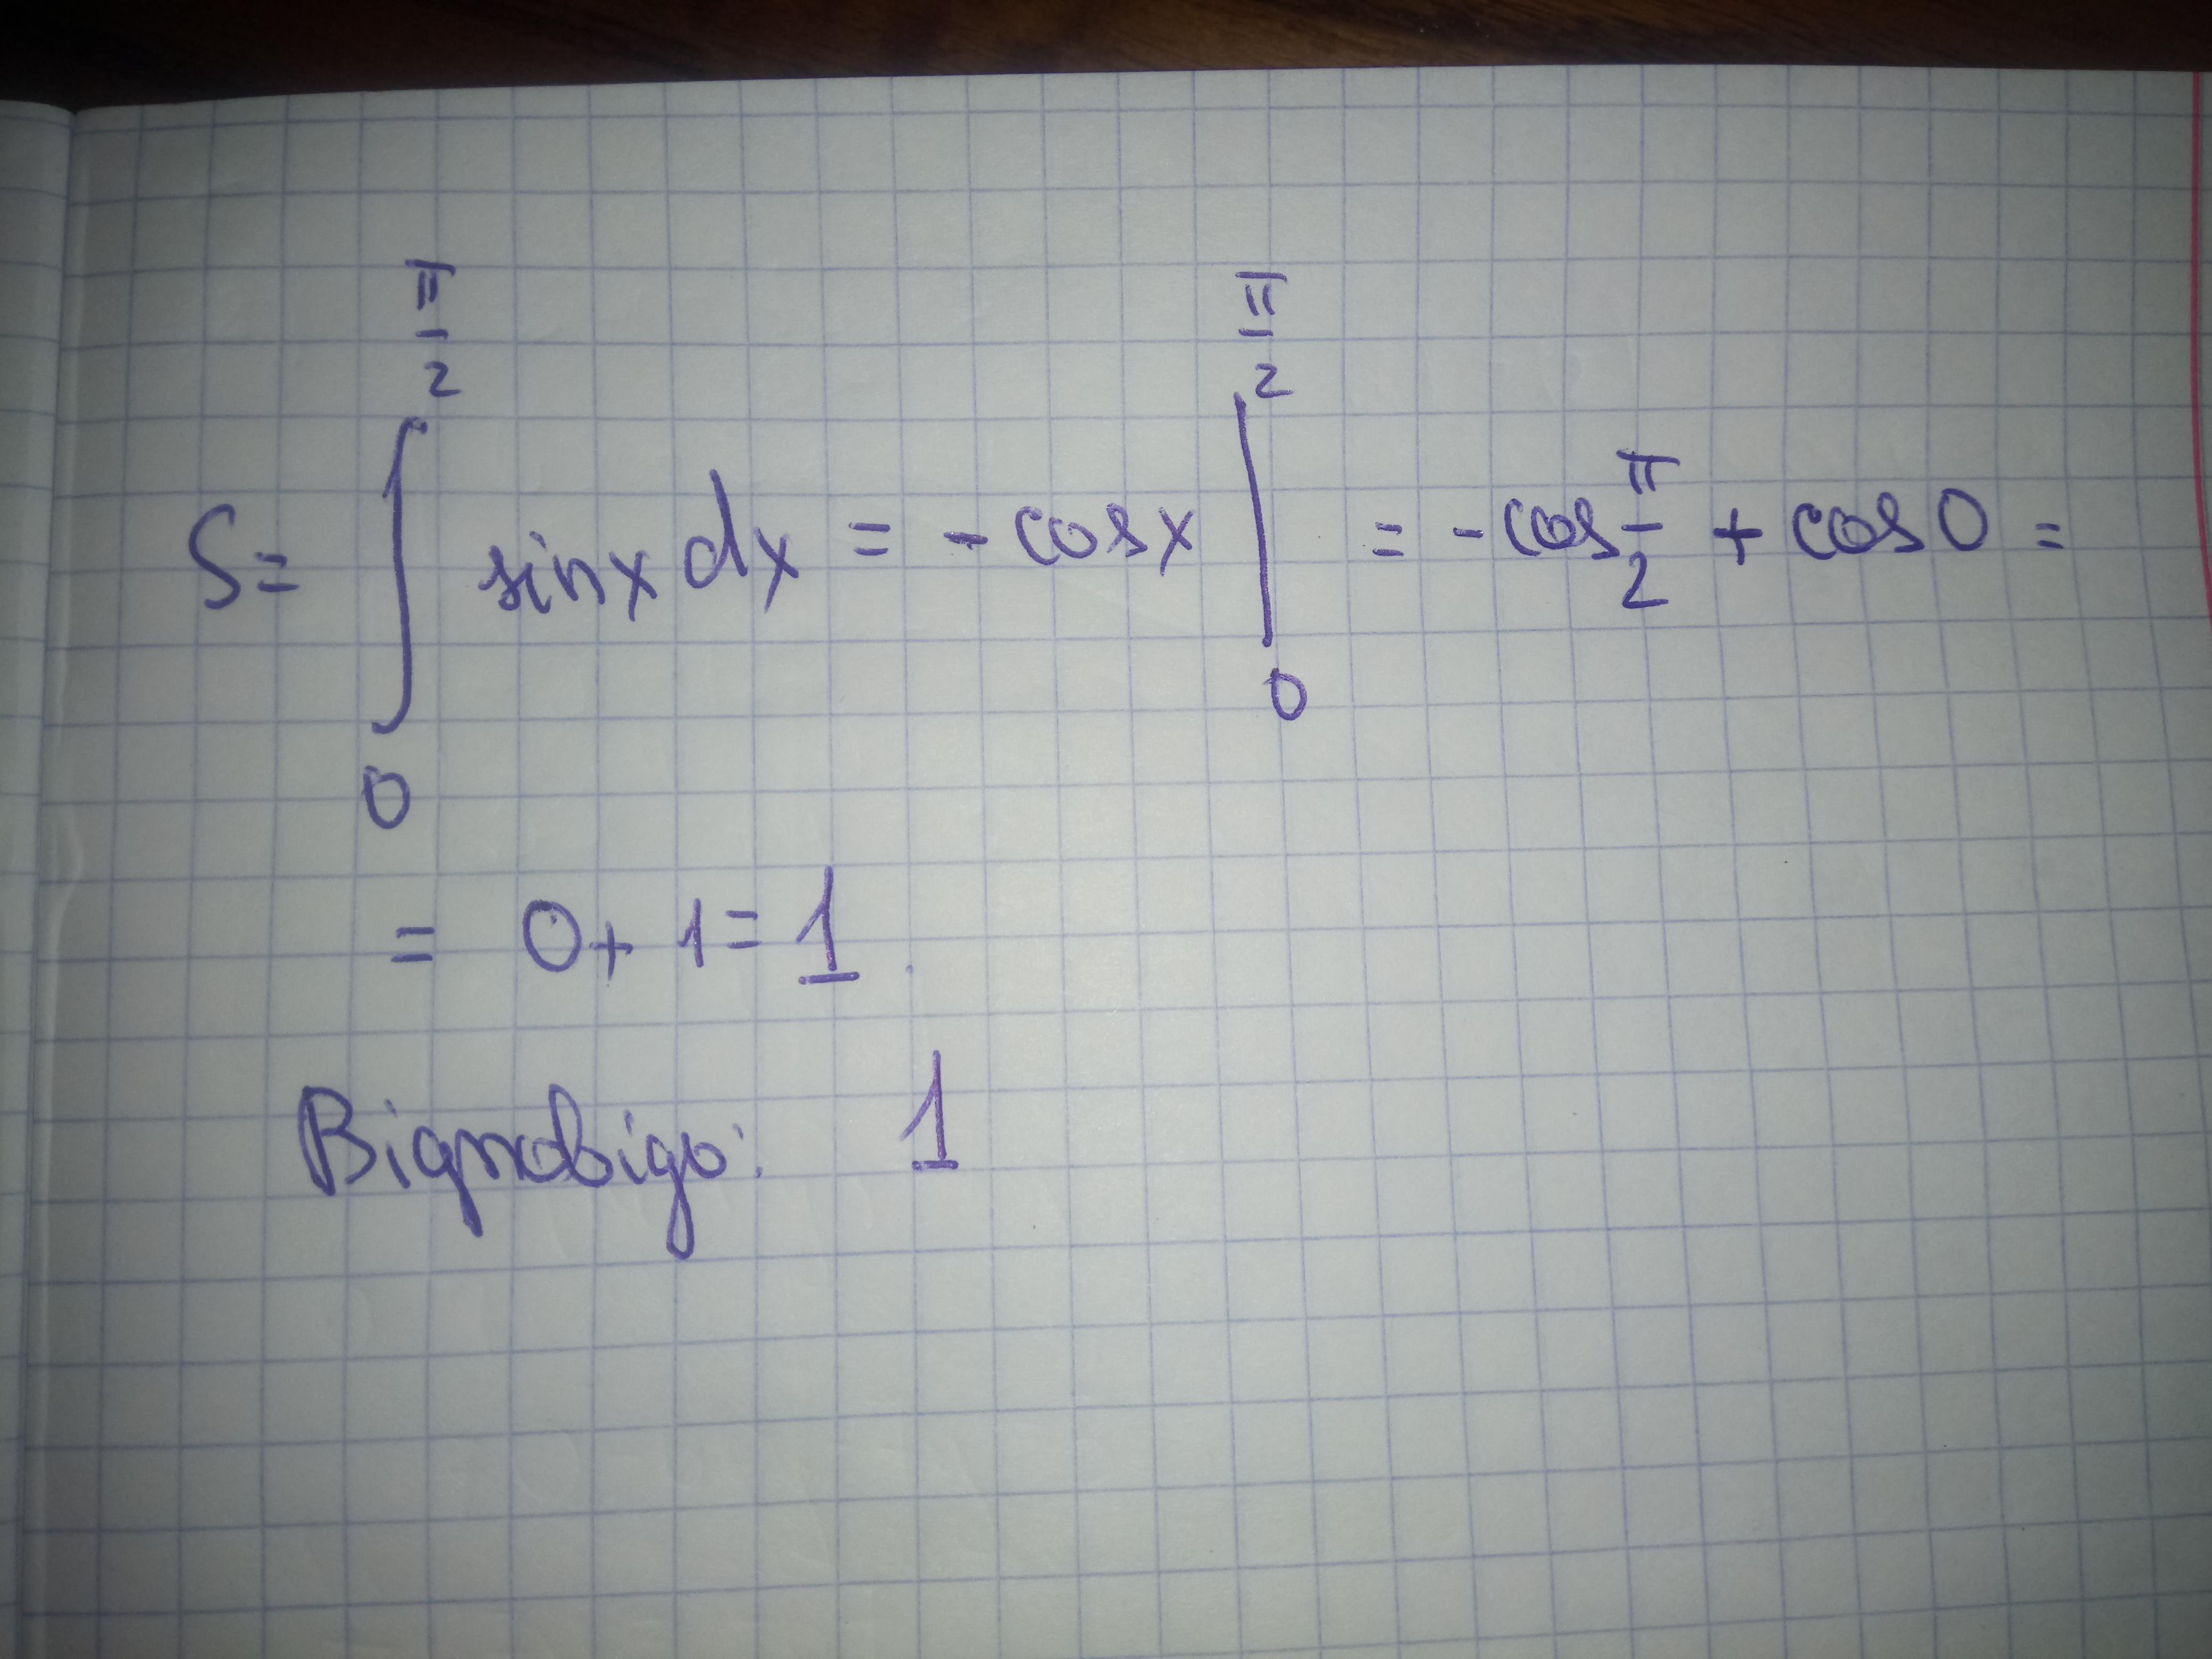 S = ∫₀^{π/2} sinx dx = - cosx |₀^{π/2} = - cos π/2 + cos 0 =
= 0 + 1 = 1.
Відповідь: 1